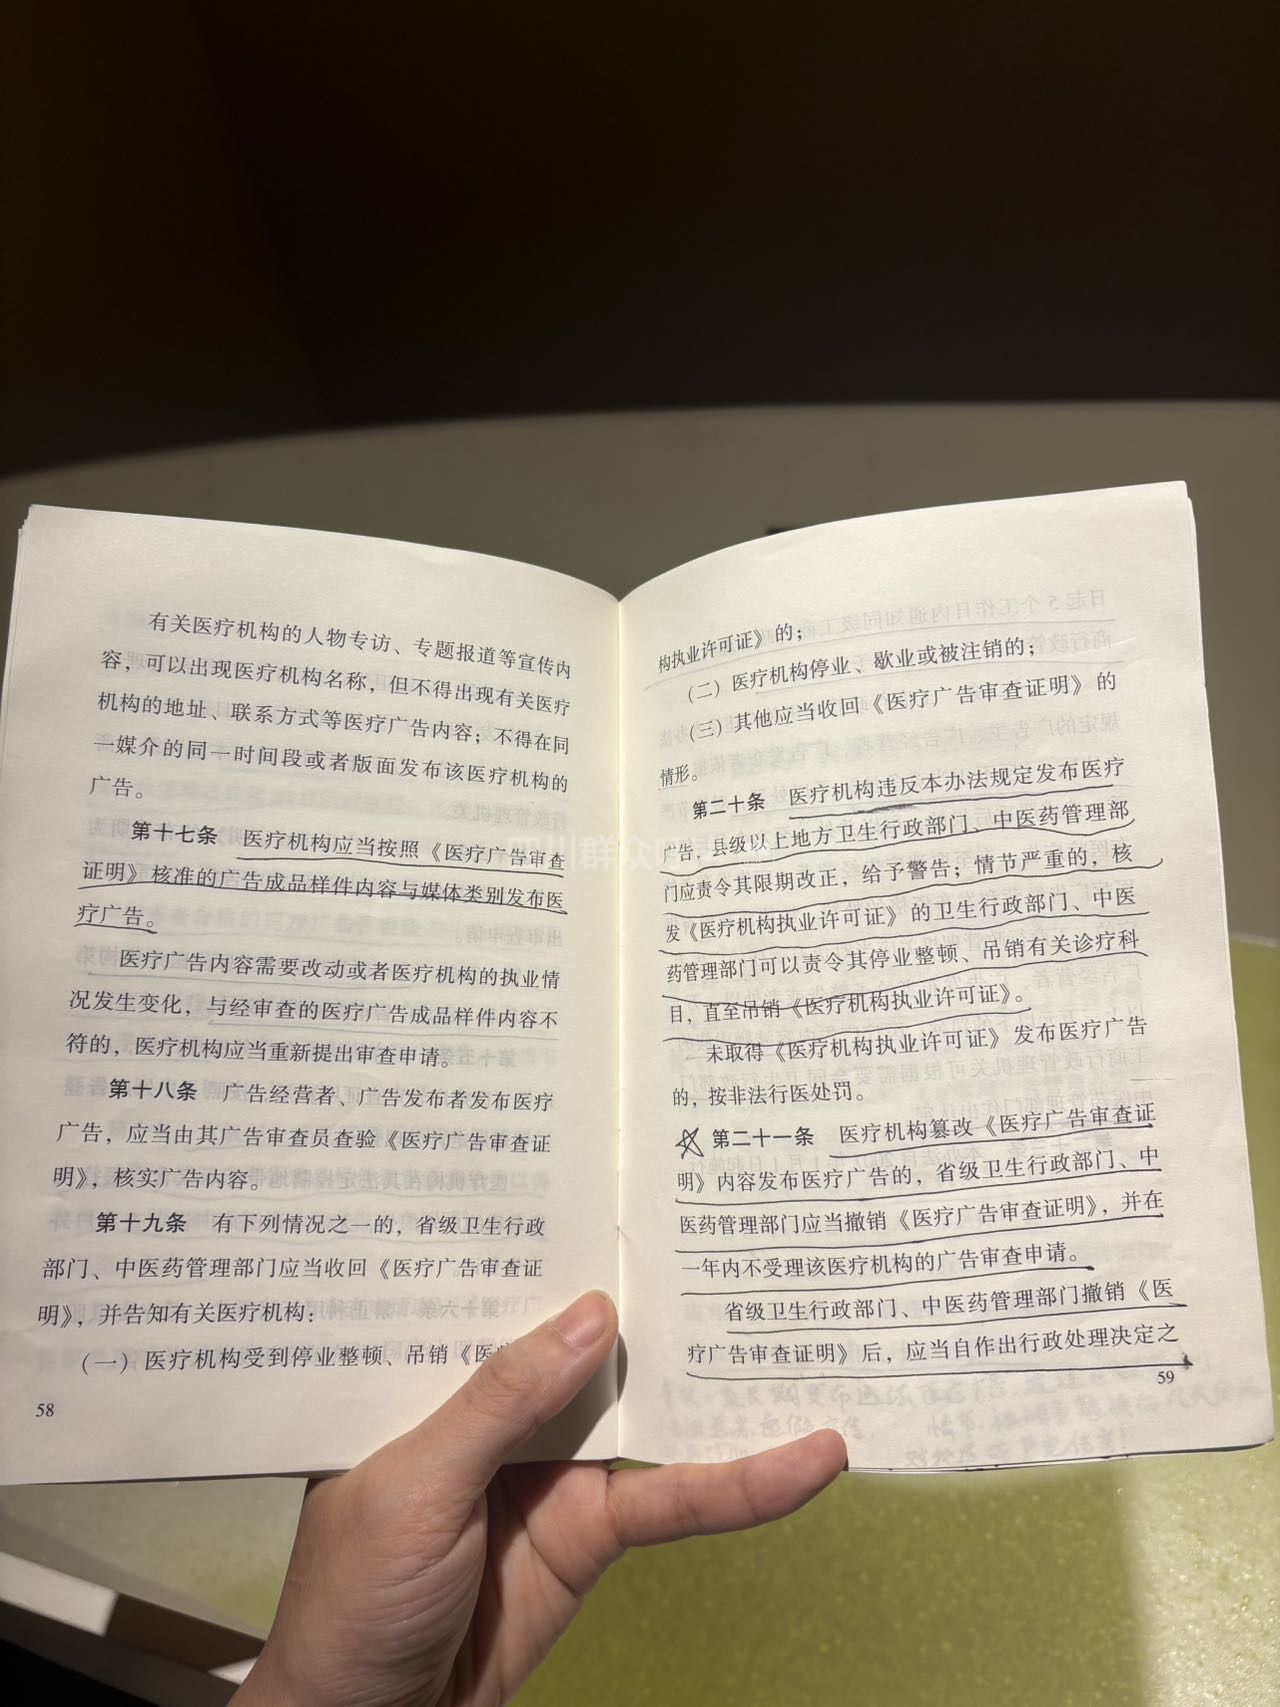 有关医疗机构的人物专访、专题报道等宣传内
容，可以出现医疗机构名称，但不得出现有关医疗
机构的地址、联系方式等医疗广告内容；不得在同
一媒介的同一时间段或者版面发布该医疗机构的
广告。
第十七条 医疗机构应当按照《医疗广告审查
证明》核准的广告成品样件内容与媒体类别发布医
疗广告。
医疗广告内容需要改动或者医疗机构的执业情
况发生变化，与经审查的医疗广告成品样件内容不
符的，医疗机构应当重新提出审查申请。
第十八条 广告经营者、广告发布者发布医疗
广告，应当由其广告审查员查验《医疗广告审查证
明》，核实广告内容。
第十九条 有下列情况之一的，省级卫生行政
部门、中医药管理部门应当收回《医疗广告审查证
明》，并告知有关医疗机构：
（一）医疗机构受到停业整顿、吊销《医
58
构执业许可证》的；
（二）医疗机构停业、歇业或被注销的；
（三）其他应当收回《医疗广告审查证明》的
情形。
第二十条 医疗机构违反本办法规定发布医疗
广告，县级以上地方卫生行政部门、中医药管理部
门应责令其限期改正，给予警告；情节严重的，核
发《医疗机构执业许可证》的卫生行政部门、中医
药管理部门可以责令其停业整顿、吊销有关诊疗科
目，直至吊销《医疗机构执业许可证》。
未取得《医疗机构执业许可证》发布医疗广告
的，按非法行医处罚。
第二十一条 医疗机构篡改《医疗广告审查证
明》内容发布医疗广告的，省级卫生行政部门、中
医药管理部门应当撤销《医疗广告审查证明》，并在
一年内不受理该医疗机构的广告审查申请。
省级卫生行政部门、中医药管理部门撤销《医
疗广告审查证明》后，应当自作出行政处理决定之
59